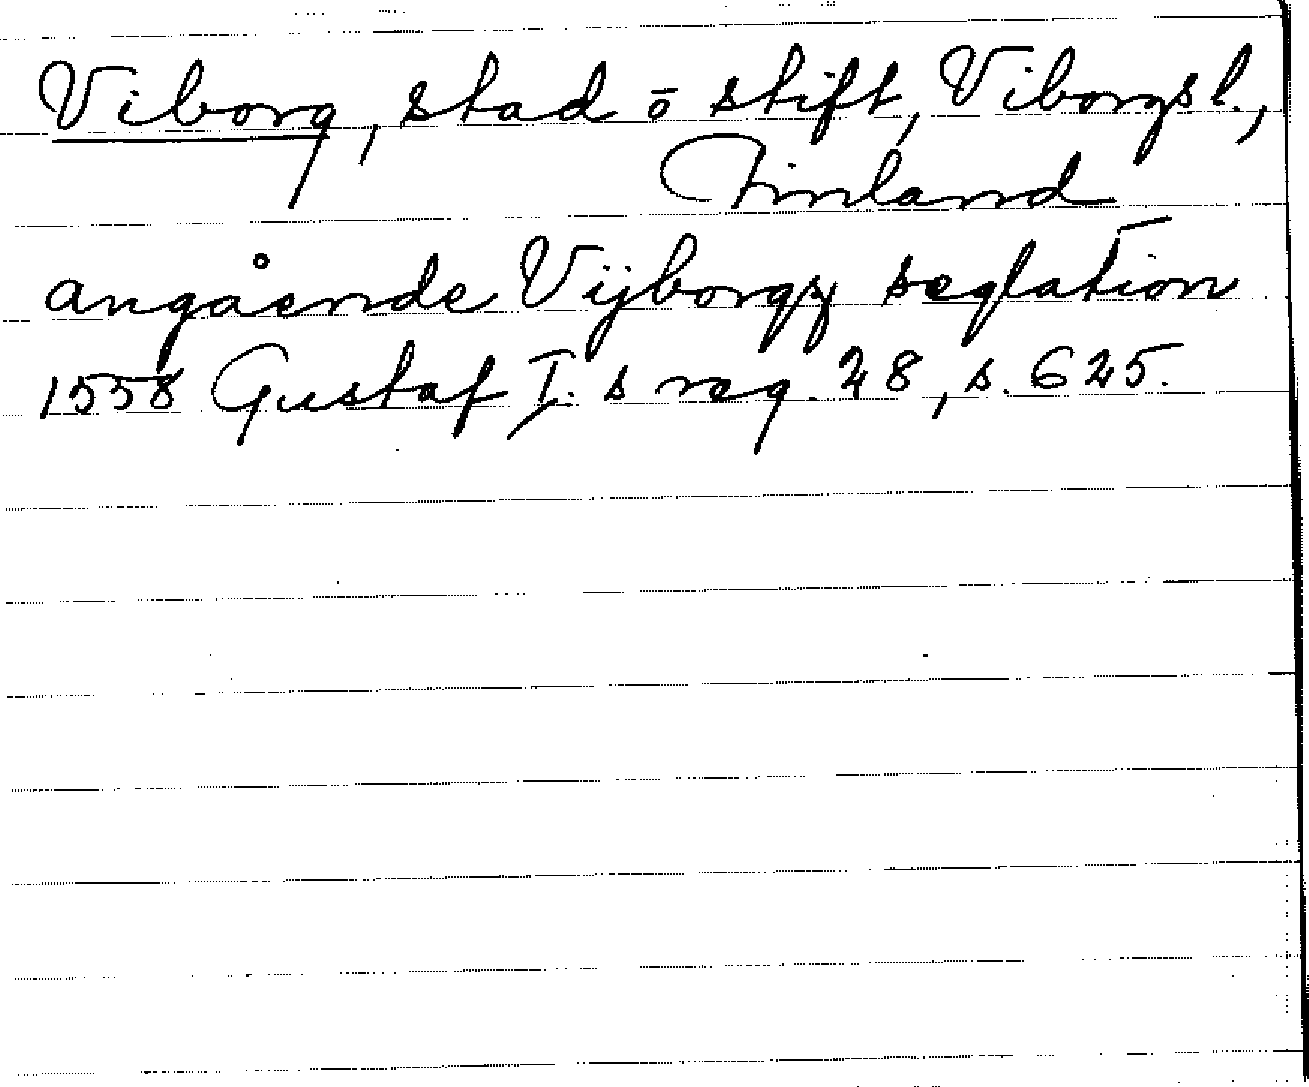 Viborg, stad o stift, Viborgs l.,
Finland
angående Vijborgz seglation
1558 Gustaf I. s reg. 28, s. 625.